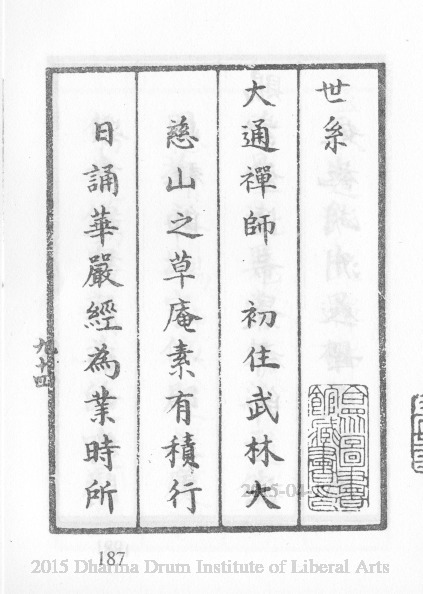 世系
大通禪師　初住武林大
慈山之草庵素有積行
日誦華嚴經為業時所
九十四
187
2015 Dharma Drum Institute of Liberal Arts